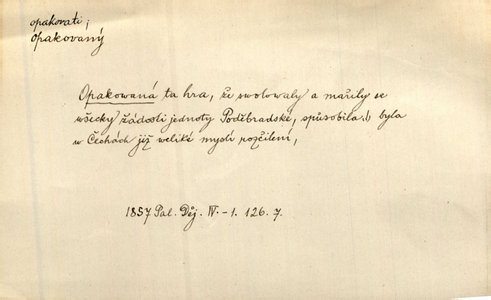 opakovati;
Opakovaný
Opakowaná ta hra, že swolowaly a mařily se
wšecky žádosti jednoty Poděbradské, spůsobila byla
w Čechách již weliké mysli rozčilení,
1857 Pal. Děj. IV.-1. 126. 7.